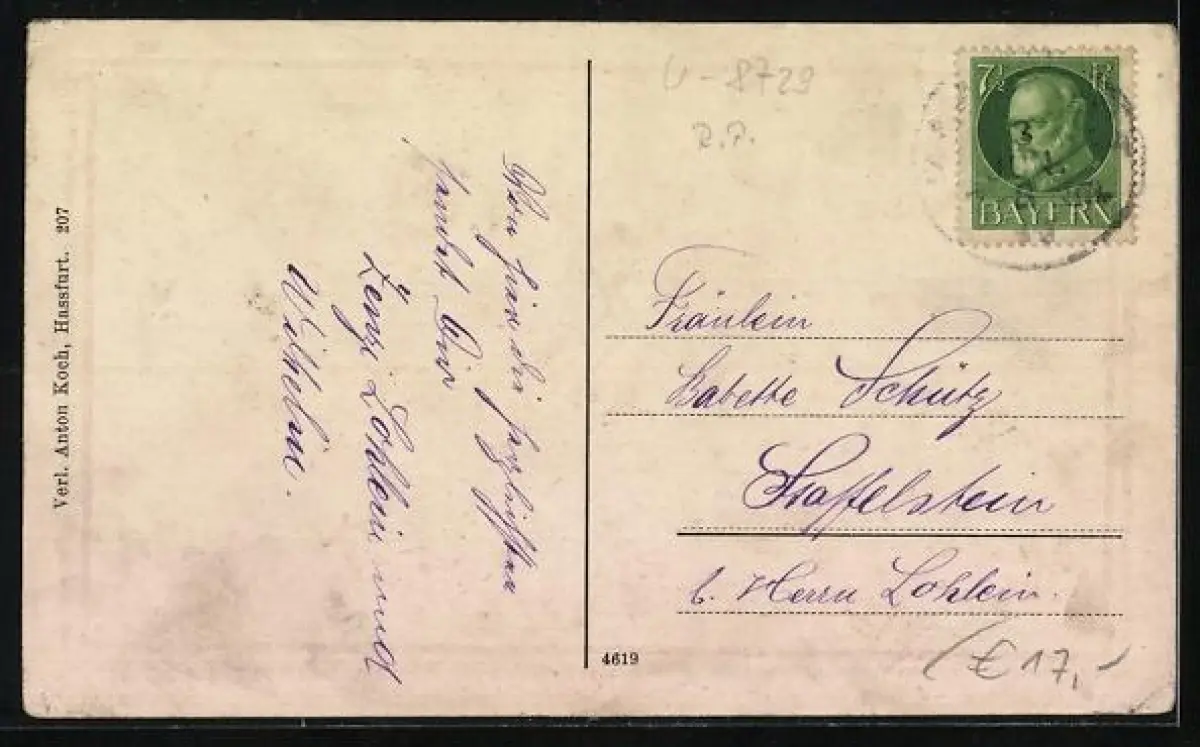 Verl. Anton Koch, Hassfurt. 207
Von hier die herzlichsten
sendet Dir
Zenzi Lohlein und
Wilhelm.
U-8729
R.P.
7½ Pf
BAYERN
Fräulein
Babette Schütz
Staffelstein
b. Herrn Lohlein.
4619
€ 17,-